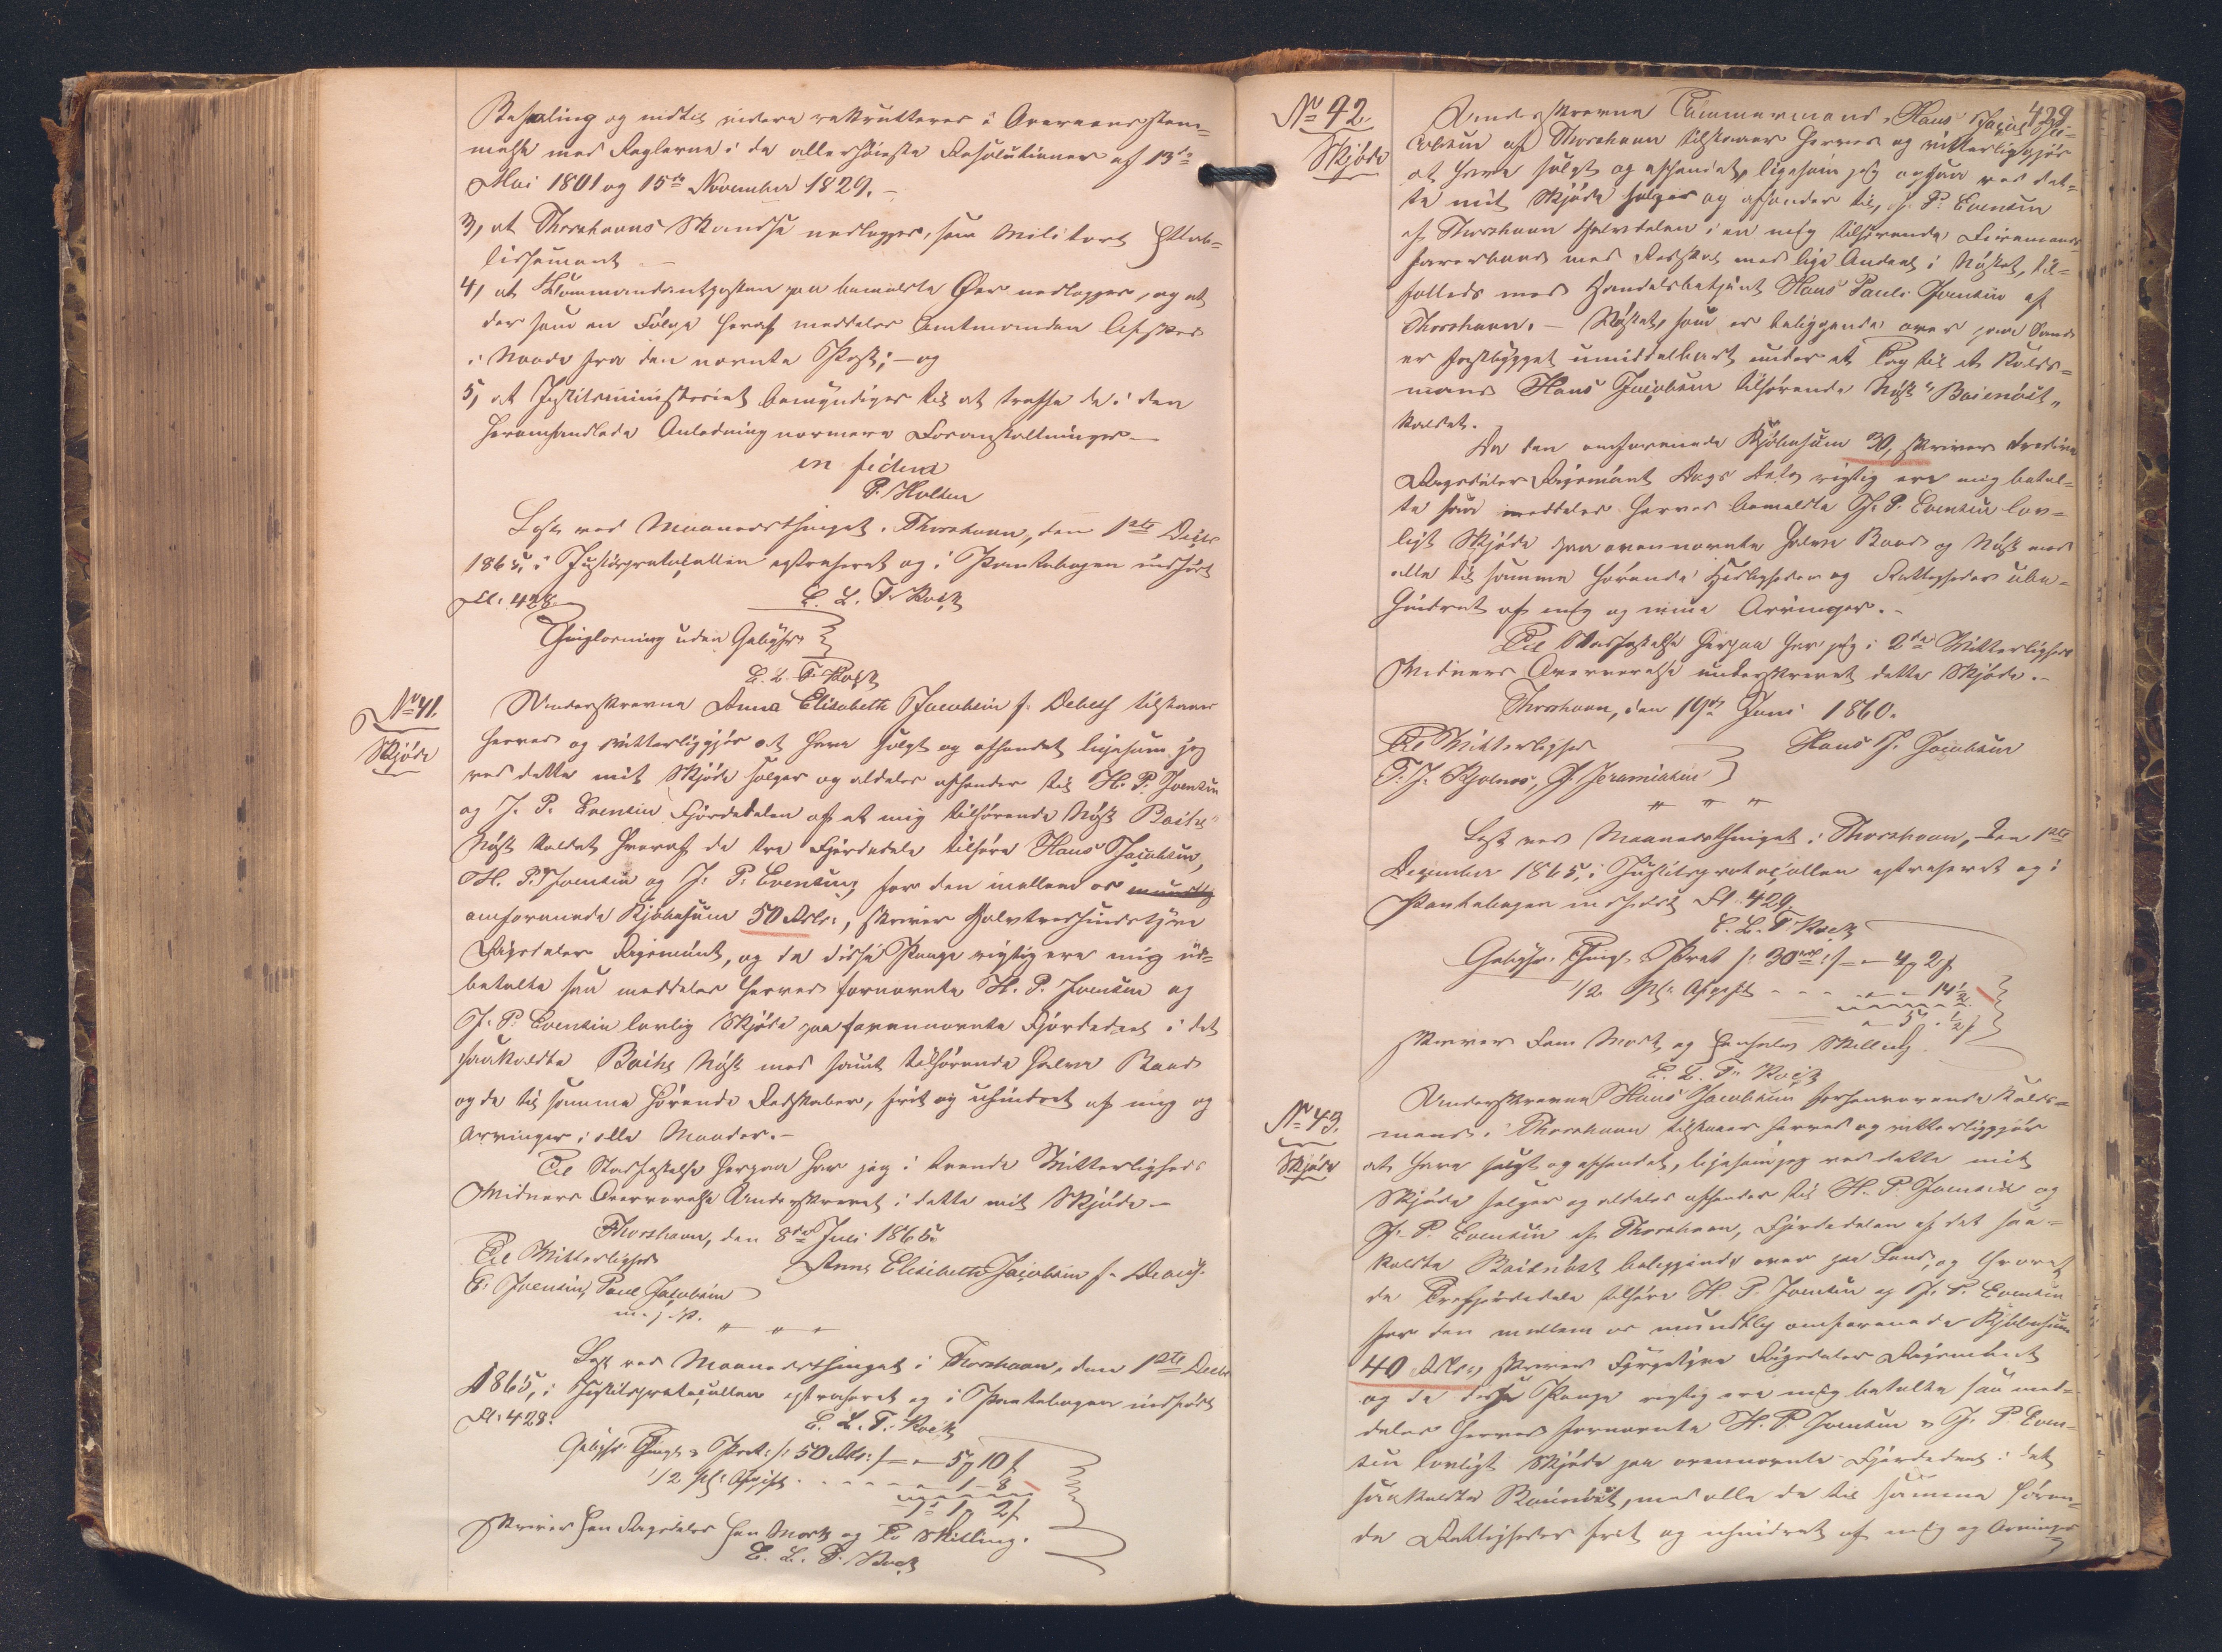 Befaling og indtil videre rettrutteres i Overeensstem=
melse med Reglerne i de allerhøieste Resolutioner af 13de
Mai 1801 og 15de November 1829.-
3, at Thorshavns Skandse nedlægges, som Militært Etab=
lissement -
4, at Kommandantposten paa bemeldte Øer nedlægges, og at
der som en Følge heraf meddeles Amtmanden Afsked
i Naade fra den nævnte Post; - og
5, at Justitsministeriet bemyndiges til at træffe de i den
heromhandlede Anledning nærmere Foranstaltninger -
in fidem
P. Holten
Læst ved Maanedsthinget i Thorshavn, den 1ste Decbr
1865, i Justitsprotocollen extraheret og i Pantebogen indført
Fl: 428.
E. L. T. Koch
Thinglæsning uden Gebyhr
E. L. T. Koch
No 41.
Skjøde
Underskrevne Anna Elisabeth Jacobsen f. Debess tilstaaer
herved og vitterliggjør at have solgt og afhændet ligesom jeg
ved dette mit Skjøde sælger og aldeles afhænder til H. P. Joensen
og J. P. Evensen Fjerdedelen af et mig tilhørende Nøst Baits
Nøst kaldet hvoraf de tre Fjerdedele tilhøre Hans Jacobsen,
H. P. Joensen og J. P. Evensen, for den imellem os mundtlig
omforenede Kjøbesum 50 Rdlr:, skriver Halvtredsindstyve
Rigsdaler Rigsmønt, og da disse Penge rigtig ere mig ud=
betalte saa meddeles herved fornævnte H. P. Joensen og
J. P. Evensen lovlig Skjøde paa forannævnte Fjerdedeel i det
saakaldte Baits Nøst med samt tilhørende halve Baad
og de til samme hørende Redskaber, frit og uhindret af mig og
Arvinger i alle Maader.-
Til Stadfæstelse herpaa har jeg i tvende Vitterligheds
Vidners Overværelse Underskrevet i dette mit Skjøde -
Thorshavn, den 8de Juli 1865.
Til Vitterlighed
Anna Elisabeth Jacobsen f. Debess.
E. Joensen, Poul Jacobsen
m. f. P.
Læst ved Maanedsthinget i Thorshavn, den 1ste Decbr
1865, i Justitsprotocollen extraheret og i Pantebogen indført
Fl: 428.
E. L. T. Koch
Gebyhr: Thingl. & Prot: f: 50 Rdlr: f - " - 5 10 f
1/2 pCt Afgift - - - - - " 1 - 8
1 1 2 f
skriver Een Rigsdaler Een Mark og To Skilling.
E. L. T. Koch
No 42.
Skjøde
429
Underskrevne Tømmermand, Hans
Jacobsen af Thorshavn tilstaaer herved og vitterliggjør
at have solgt og afhændet, ligesom jeg ogsaa ved det=
te mit Skjøde sælger og afhænder til, J. P. Evensen
af Thorshavn Halvdelen i en mig tilhørende Firemands
farerbaad med Redskab med lige Andeel i Nøstet, til=
fælleds med Handelsbetjent Hans Pauli Joensen af
Thorshavn. - Nøstet, som er beliggende over paa Sand
er fastbygget umiddelbart under et Tag til et Kolds=
mand Hans Jacobsen tilhørende Nøst "Baienøst"
kaldet.
Da den omforenede Kjøbesum 30, skriver tredive
Rigsdaler Rigsmønt Dags Dato rigtig ere mig betal=
te saa meddeles herved bemeldte J. P. Evensen lov=
ligt Skjøde paa ovennævnte halve Baad og Nøst med
alle til samme hørende Herligheder og Rettigheder ube=
hindret af mig og mine Arvinger.-
Til Stadfæstelse herpaa har jeg i 2de Vitterligheds
Vidners Overværelse underskrevet dette Skjøde.-
Thorshavn, den 19de Juni 1860.
Til Vitterlighed
Hans J. Jacobsen
T. J. Kjolnæs, J. Jeremiassen
Læst ved Maanedsthinget i Thorshavn, den 1ste
December 1865, i Justitsprotocollen extraheret og i
Pantebogen indført Fl. 429.
E. L. T. Koch
Gebyhr: Thingl. & Prot f: 30 Rd: f - " - 4 2 f
1/2 pCt Afgift - - - " - 14 1/2
" 5 " 1/2 f
skriver Fem Mark og En halv Skilling
E. L. T. Koch
No 43.
Skjøde
Underskrevne Hans Jacobsen forhenværende Kolds=
mand i Thorshavn tilstaaer herved og vitterliggjør
at have solgt og afhændet, ligesom jeg ved dette mit
Skjøde sælger og aldeles afhænder til H. P. Joensen og
J. P. Evensen af Thorshavn, Fjerdedelen af det saa=
kaldte Baitnøst beliggende over paa Sand, og hvoraf
de Trefjerdedele tilhøre H. P. Joensen og J. P. Evensen
for den mellem os mundtlig omforenede Kjøbesum
40 Rdlr:, skriver Fyrgetyve Rigsdaler Rigsmønt
og da disse Penge rigtig ere mig betalte saa med=
deles herved fornævnte H. P. Joensen & J. P. Even=
sen lovligt Skjøde paa ovennævnte Fjerdedeel i det
saakaldte Baienøst, med alle de til samme høren=
de Rettigheder frit og uhindret af mig og Arvinger